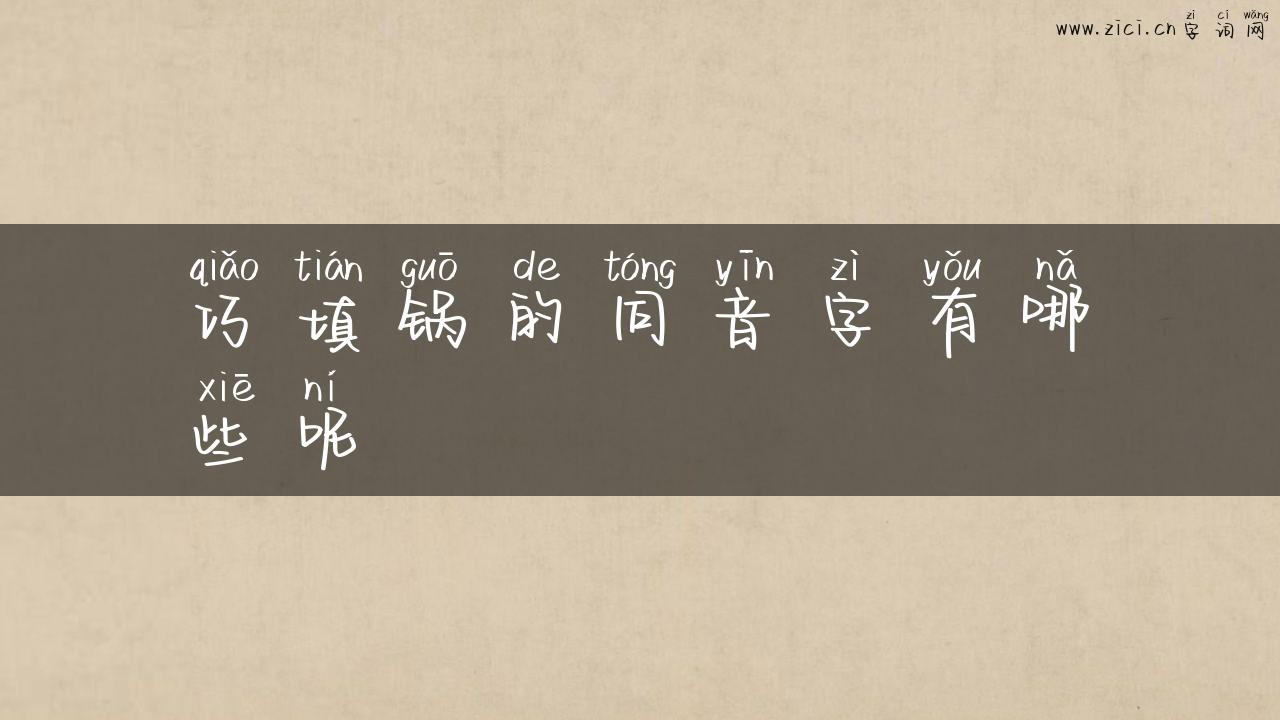 zì cí wǎng
www.zici.cn 字词网
qiǎo tián guō de tóng yīn zì yǒu nǎ
巧填锅的同音字有哪
xiē ní
些呢